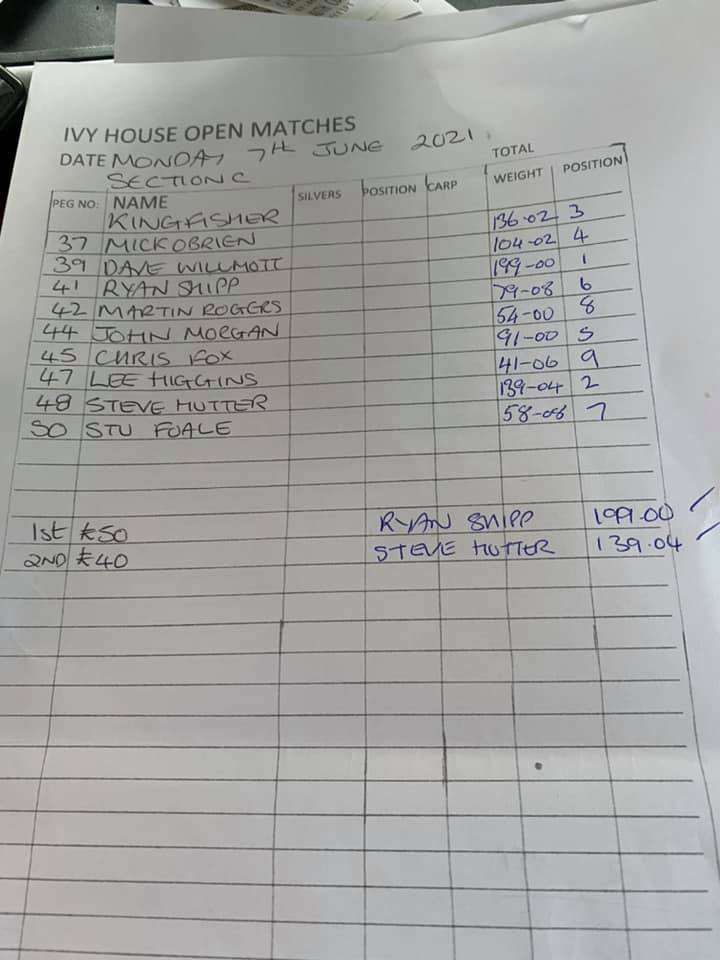 IVY HOUSE OPEN MATCHES
DATE MONDAY 7th JUNE 2021
SECTION C
PEG NO: NAME SILVERS POSITION CARP TOTAL WEIGHT POSITION
KINGFISHER
37 MICK OBRIEN 136-02 3
39 DAVE WILLMOTT 104-02 4
41 RYAN SHIPP 199-00 1
42 MARTIN ROGERS 79-08 6
44 JOHN MORGAN 54-00 8
45 CHRIS FOX 91-00 5
47 LEE HIGGINS 41-06 9
48 STEVE HUTTER 139-04 2
50 STU FOALE 58-08 7
1st £50 RYAN SHIPP 199.00
2ND £40 STEVE HUTTER 139.04